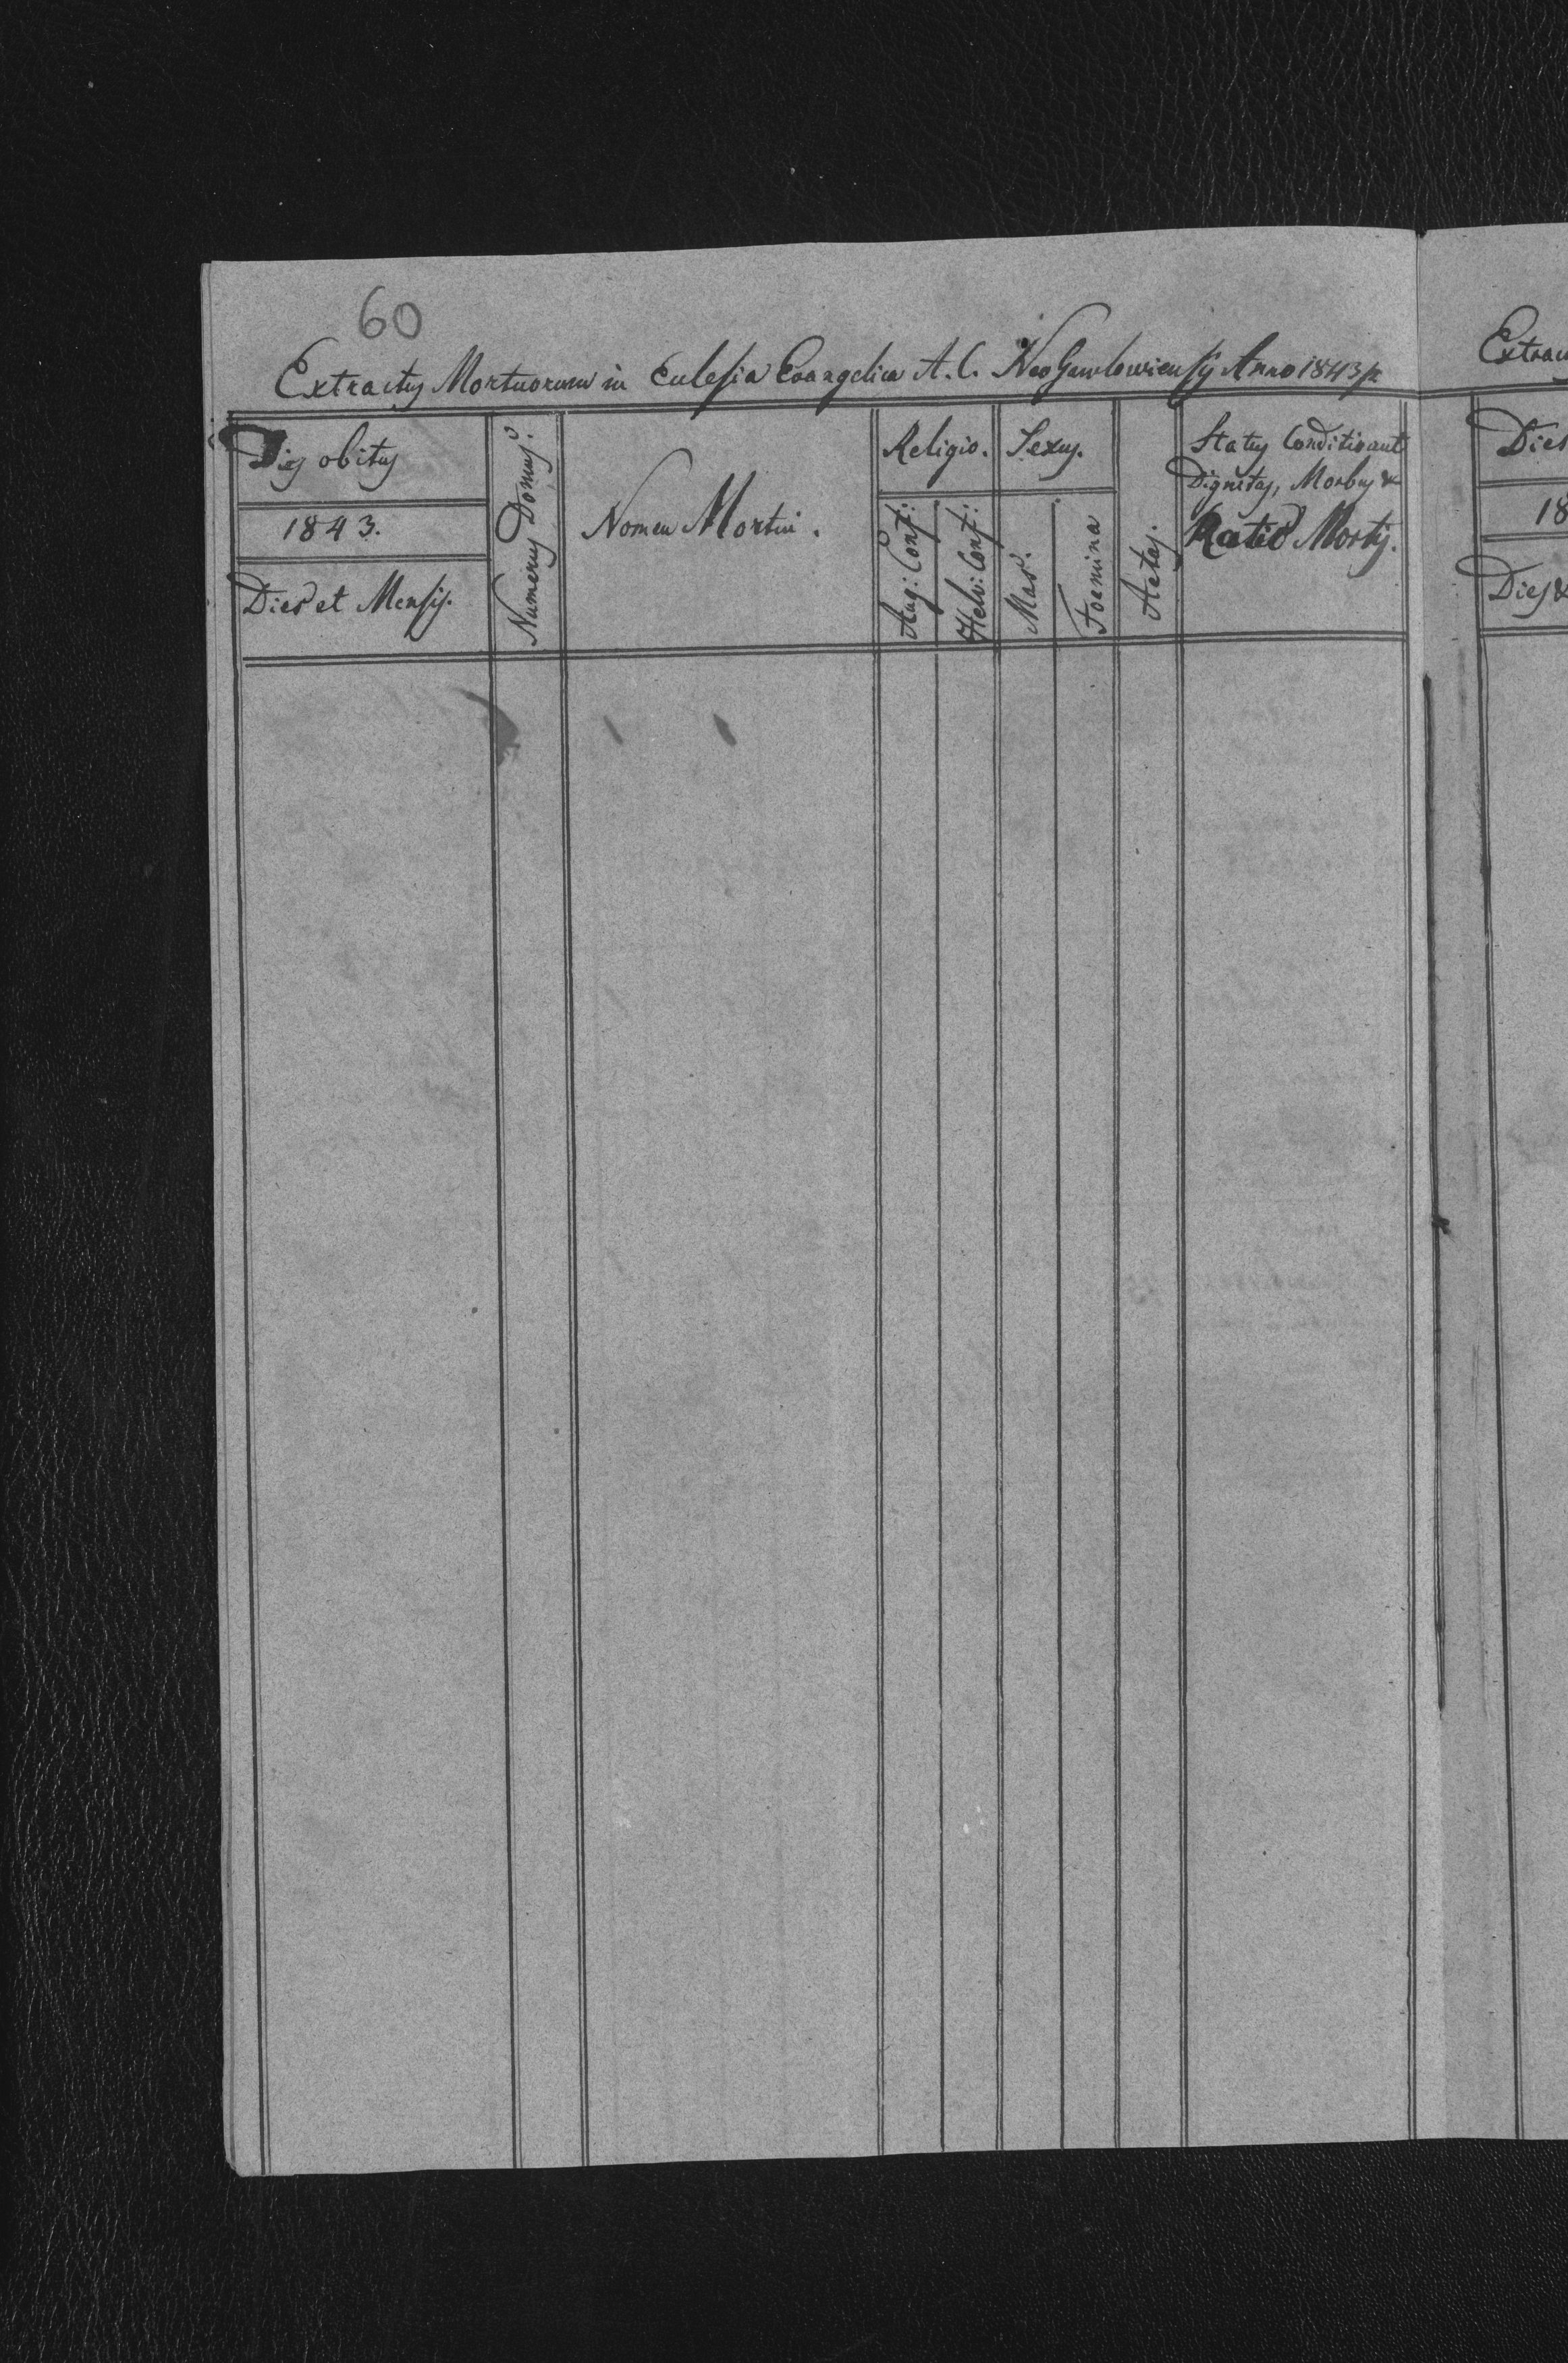 60
Extractus Mortuorum in Eclesia Evangelica A. C. NeoGawlowiensis Anno 1843
Dies obitus
1843.
Dies et Mensis.
Numerus Domus.
Nomen Mortui.
Religio.
Aug: Conf:
Helv: Conf:
Sexus.
Mas.
Foemina
Aetas.
Status Conditio aut
Dignitas, Morbus &
Ratio Mortis.
Extrac
Dies
18
Dies &